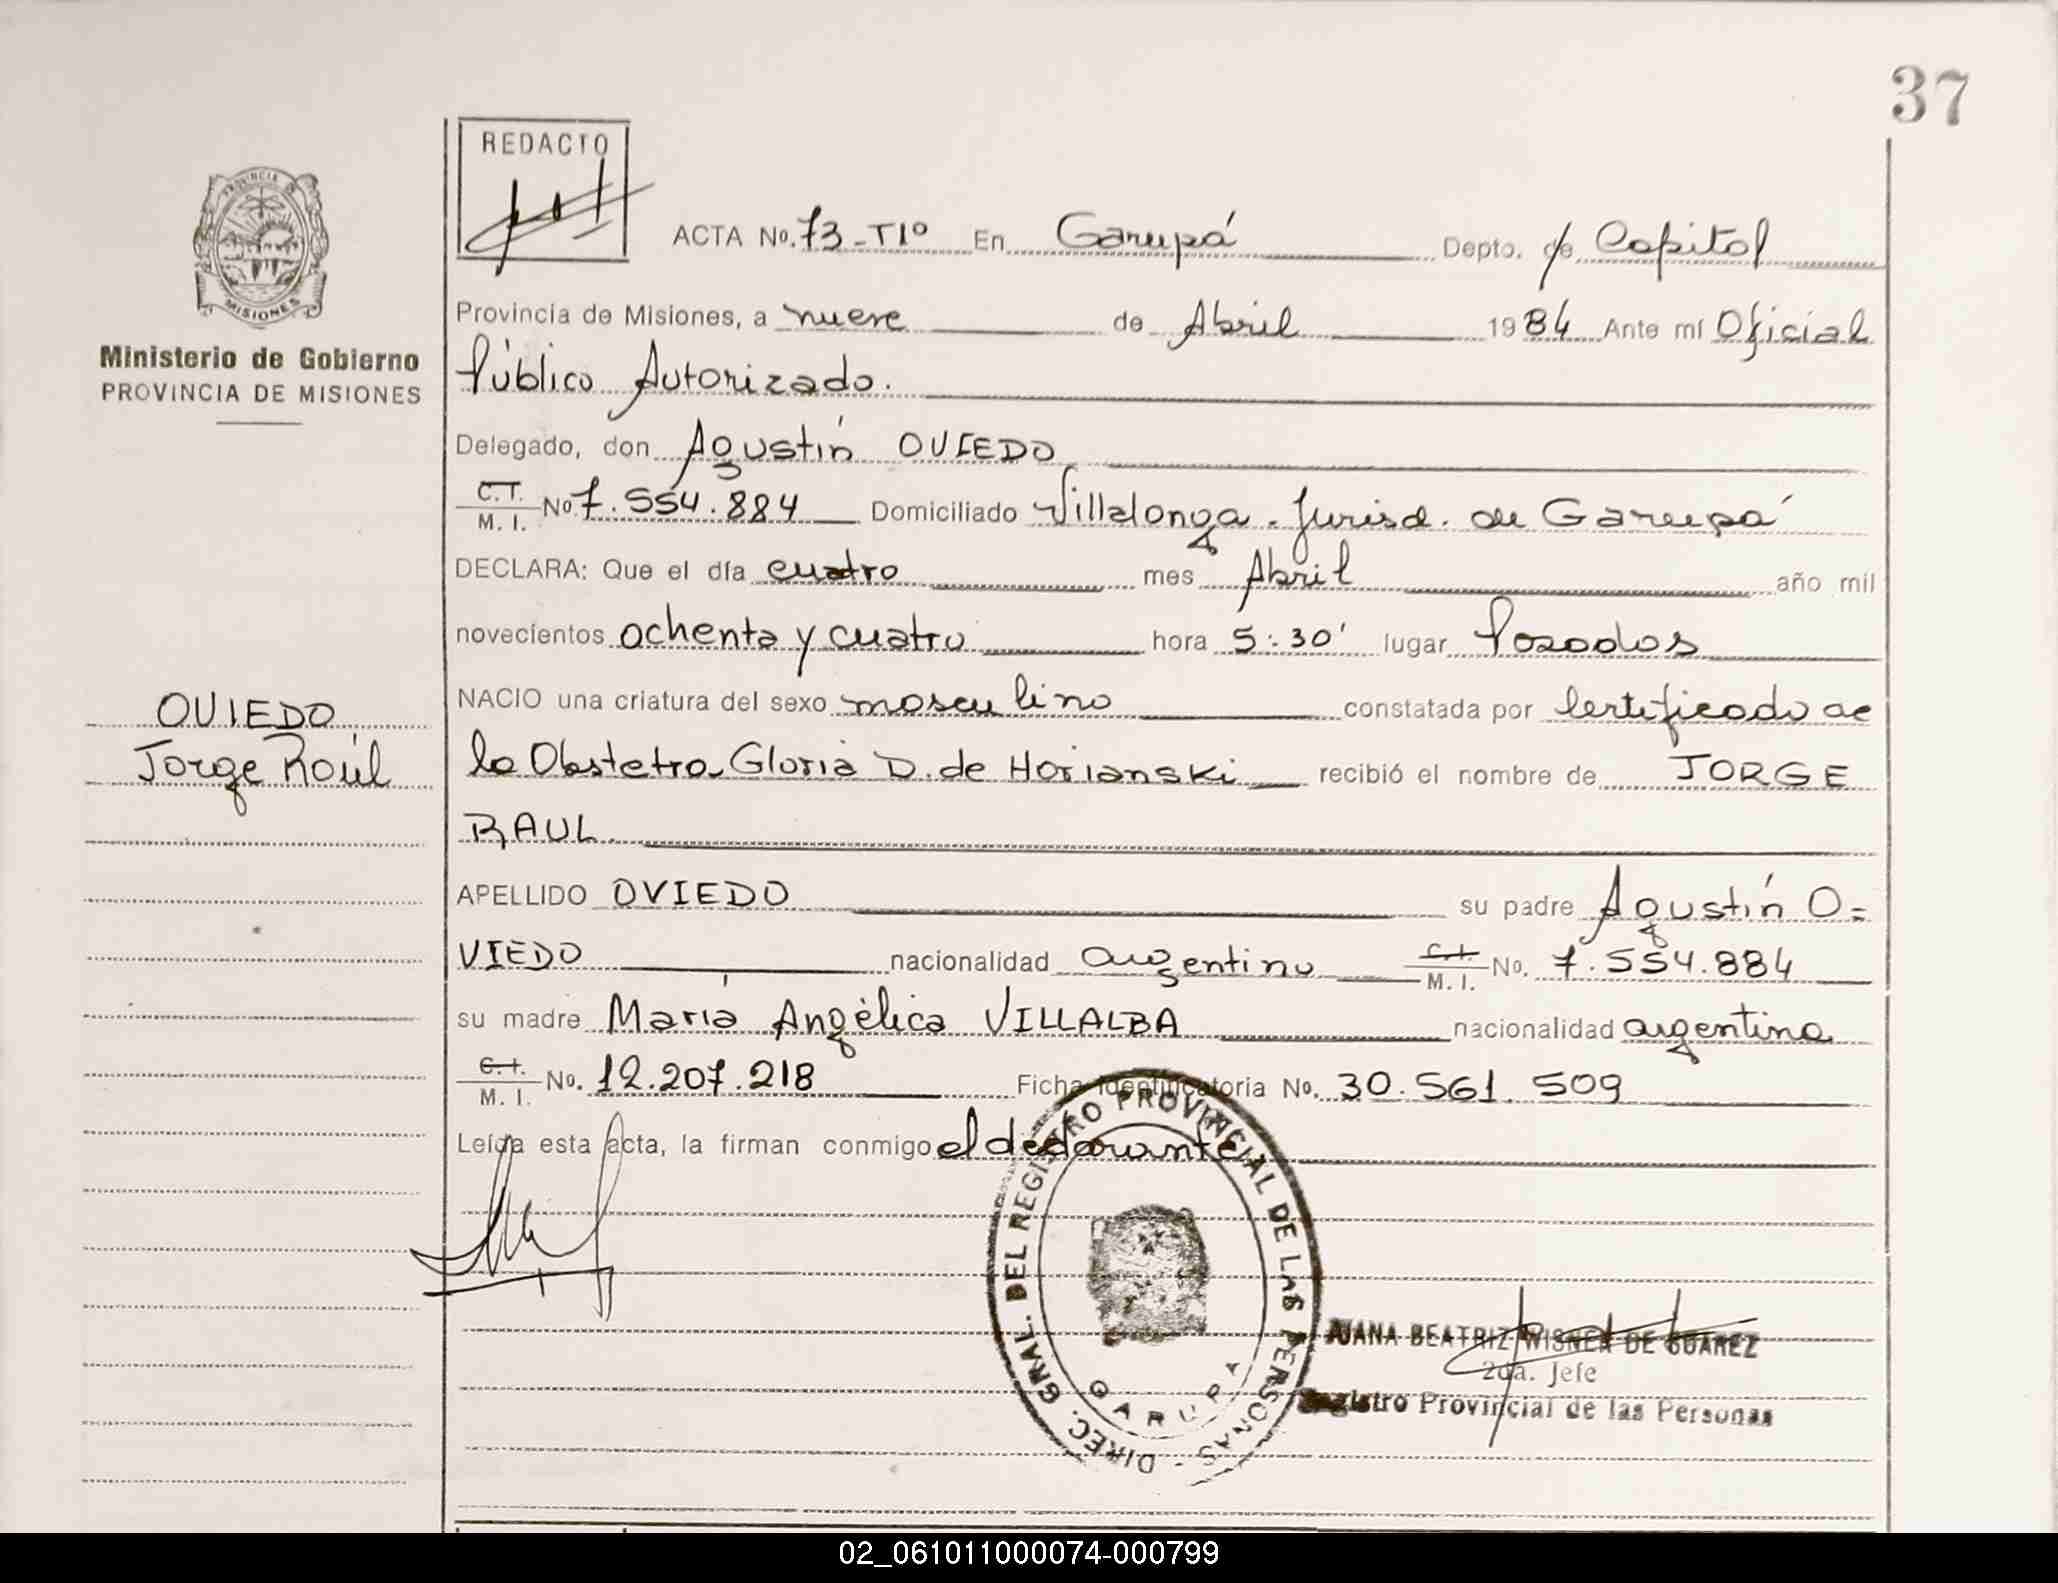 37
REDACTO
PROVINCIA DE
MISIONES
ACTA No. 73-T1º En Garupá Depto. de Capital
Provincia de Misiones, a nueve de Abril 1984 Ante mí Oficial
Ministerio de Gobierno
PROVINCIA DE MISIONES
Público Autorizado.
Delegado, don Agustín OVIEDO
C.T. M. I. No. 7.554.884 Domiciliado Villalonga. Jurisd. de Garupá
DECLARA: Que el día cuatro mes Abril año mil
novecientos ochenta y cuatro hora 5:30' lugar Posadas
NACIO una criatura del sexo masculino constatada por Certificado de
OVIEDO
Jorge Raúl
la Obstetra Gloria D. de Horianski recibió el nombre de JORGE
RAUL.
APELLIDO OVIEDO su padre Agustín O=
VIEDO nacionalidad argentino C.I. M. I. No. 7.554.884
su madre María Angélica VILLALBA nacionalidad argentina
C.I. M. I. No. 12.207.218 Ficha Identificatoria No. 30.561.509
Leída esta acta, la firman conmigo el declarante
DIREC. GRAL. DEL REGISTRO PROVINCIAL DE LAS PERSONAS -
GARUPA
JUANA BEATRIZ WISNER DE SUAREZ
2da. Jefe
Registro Provincial de las Personas
02_061011000074-000799